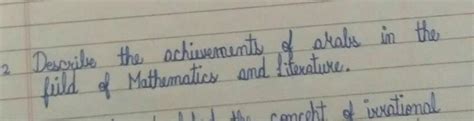 2 Describe the achievements of arabs in the
feild of Mathematics and literature.
the concept of irrational